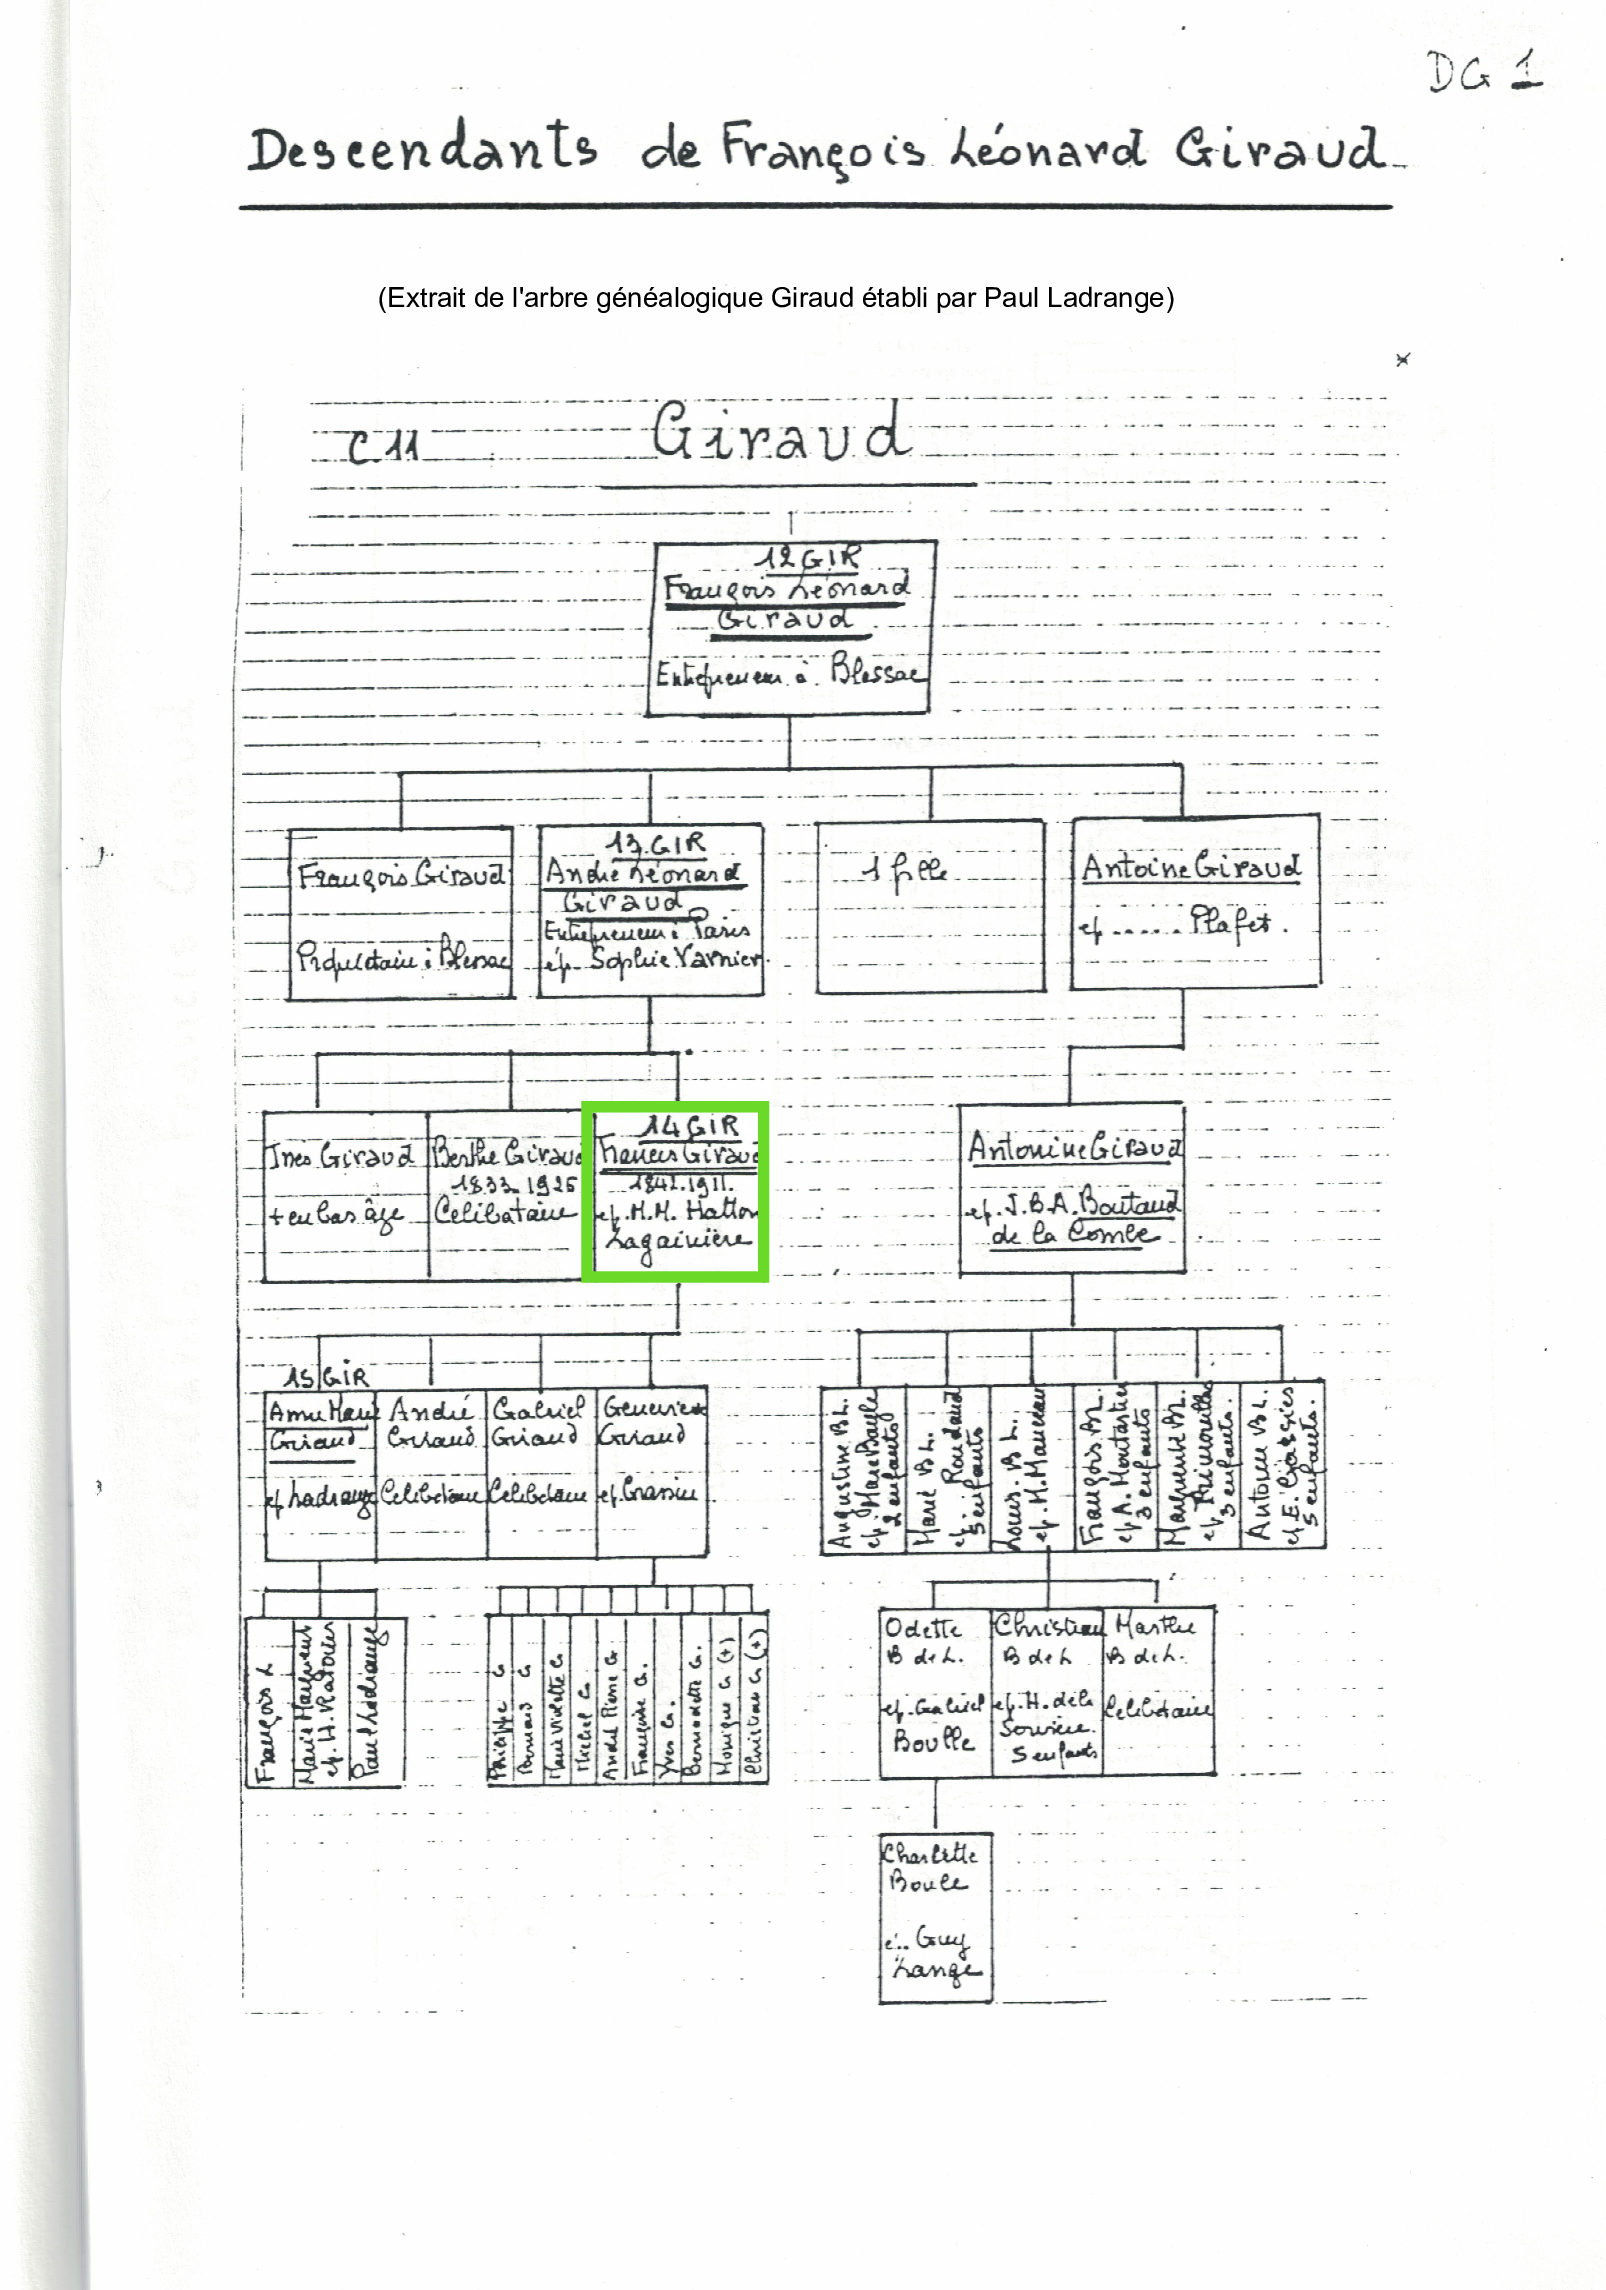 DG 1
Descendants de François Léonard Giraud
(Extrait de l'arbre généalogique Giraud établi par Paul Ladrange)
C 11
Giraud
12 GIR
François Léonard
Giraud
Entrepreneur à Blessac
François Giraud
Propriétaire à Blessac
13.GIR
André Léonard
Giraud
Entrepreneur à Paris
ép. Sophie Varnier.
1 fille
Antoine Giraud
ep ...... Plafet.
Ines Giraud
+ en bas âge
Berthe Giraud
1833_1925
Celibataire
14 GIR
Giraud
1842.1911.
ep. M.M. Hatton
Lagainière
Antonine Giraud
ep. J.B.A. Boutaud
de la Combe
15 GIR
Anne Marie
Giraud
ep Ladrange
André
Giraud
Celibataire
Gabriel
Giraud
Celibataire
Geneviève
Giraud
ep.
Augustine B L.
ep. Marc Bayle
2 enfants
Marie B L.
ep.
5 enfants
Louis. B L.
ep. M.
François BL.
ep A.
3 enfants
Marguerite BL.
ep
3 enfants.
Antoine B L.
ep E.
5 enfants.
François L
Marie
ep. H.
Paul Ladrange
Philippe G
Bernard G
Marie Violette G
Michel G
André Pierre G
Françoise G.
Yves G.
Bernadette G.
Monique G (+)
Christian G (+)
Odette
B de L.
ep. Gabriel
Boulle
Christiane
B de L
ep. H. de la
5 enfants
Marthe
B de L.
Celibataire
Charlotte
Boulle
é.. Guy
Lange